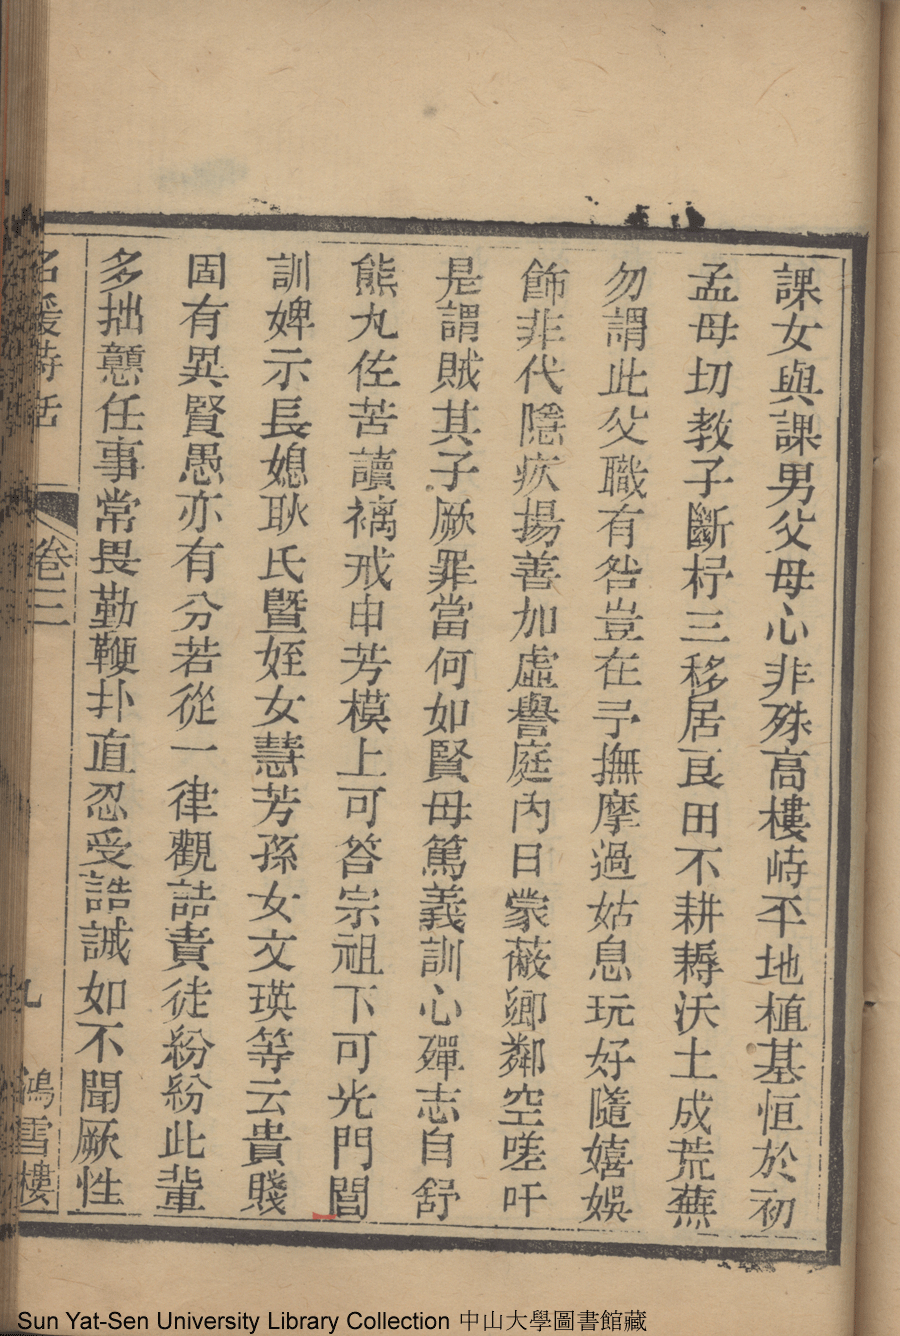 課女與課男父母心非殊高樓峙平地植基恒於初
孟母切教子斷杼三移居良田不耕耨沃土成荒蕪
勿謂此父職有咎豈在予撫摩過姑息玩好隨嬉娛
飾非代隱疾揚善加虛譽庭內日蒙蔽鄉鄰空嗟吁
是謂賊其子厥罪當何如賢母篤義訓心殫志自舒
熊丸佐苦讀褵戒申芳模上可答宗祖下可光門閭
訓婢示長媳耿氏曁姪女慧芳孫女文瑛等云貴賤
固有異賢愚亦有分若從一律觀詰責徒紛紛此輩
多拙戇任事常畏勤鞭扑直忍受誥誡如不聞厥性
名媛詩話 卷三 九 鴻雪樓
Sun Yat-Sen University Library Collection 中山大學圖書館藏